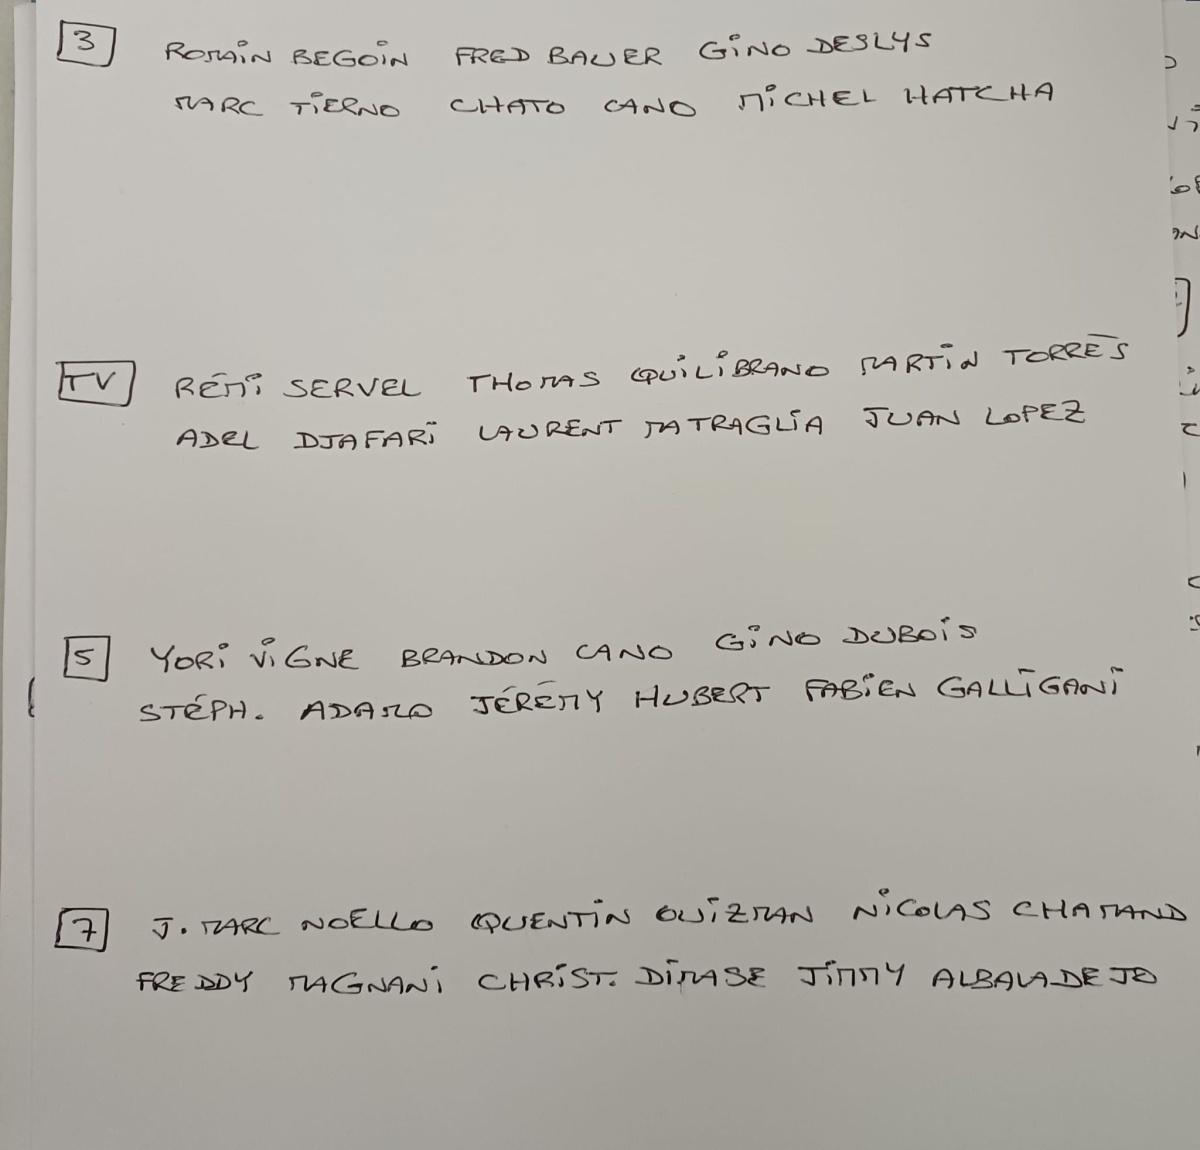 3 ROMAIN BEGOIN FRED BAUER GINO DESLYS
MARC TIERNO CHATO CANO MICHEL HATCHA
TV RÉMI SERVEL THOMAS QUILIBRANO MARTIN TORRÈS
ADEL DJAFARI LAURENT MATRAGLIA JUAN LOPEZ
5 YORI VIGNE BRANDON CANO GINO DUBOIS
STÉPH. ADAMO JÉRÉMY HUBERT FABIEN GALLIGANI
7 J. MARC NOELLO QUENTIN OUIZMAN NICOLAS CHAMAND
FREDDY MAGNANI CHRIST. DIMASE JIMMY ALBALADEJO